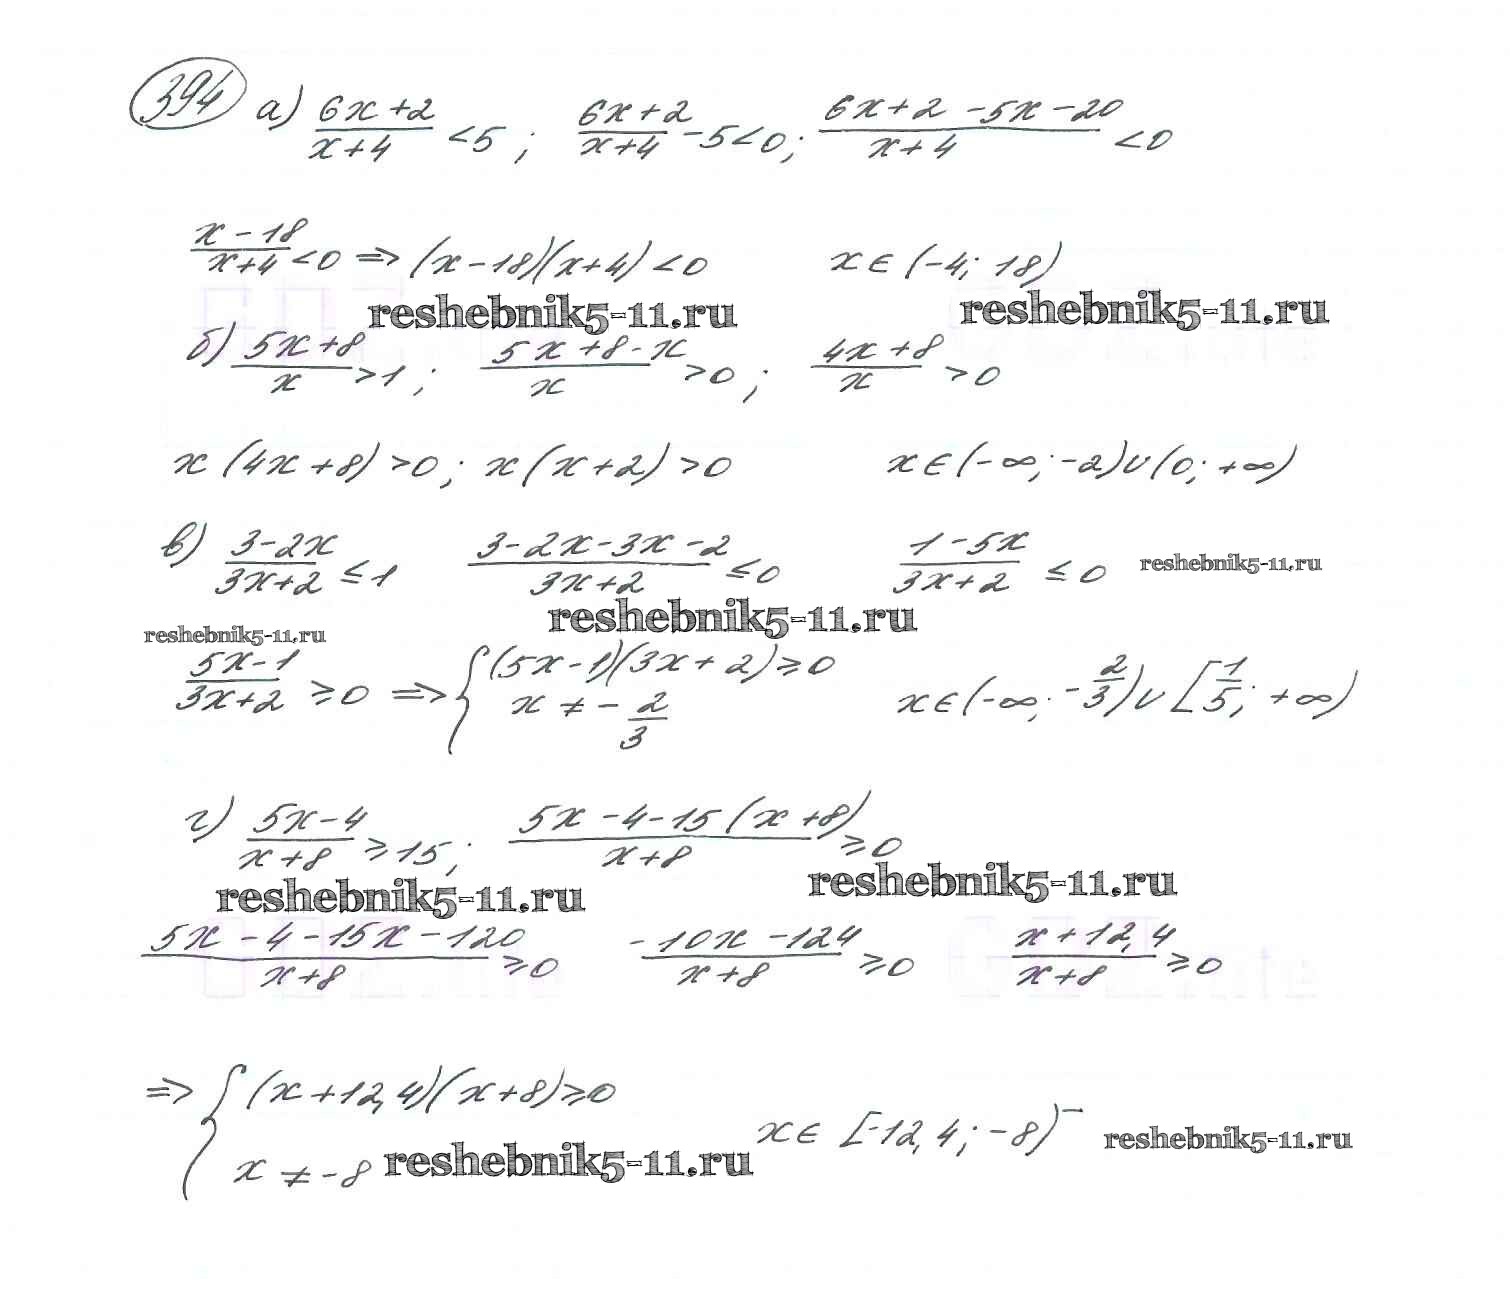 394 а) (6x+2)/(x+4) <5 ; (6x+2)/(x+4) -5<0; (6x+2 -5x-20)/(x+4) <0
(x-18)/(x+4) <0 => (x-18)(x+4) <0 x∈(-4; 18)
reshebnik5-11.ru reshebnik5-11.ru
б) (5x+8)/x >1 ; (5x+8-x)/x >0 ; (4x+8)/x >0
x(4x+8)>0; x(x+2)>0 x∈(-∞; -2)∪(0; +∞)
в) (3-2x)/(3x+2) ≤1 (3-2x-3x-2)/(3x+2) ≤0 (1-5x)/(3x+2) ≤0 reshebnik5-11.ru
reshebnik5-11.ru reshebnik5-11.ru
(5x-1)/(3x+2) ≥0 => { (5x-1)(3x+2)≥0
x ≠ -2/3 x∈(-∞; -2/3)∪[1/5; +∞)
г) (5x-4)/(x+8) ≥15; (5x-4-15(x+8))/(x+8) ≥0
reshebnik5-11.ru reshebnik5-11.ru
(5x-4-15x-120)/(x+8) ≥0 (-10x-124)/(x+8) ≥0 (x+12,4)/(x+8) ≥0
=> { (x+12,4)(x+8)≥0
x ≠ -8 reshebnik5-11.ru x∈ [-12,4; -8) reshebnik5-11.ru